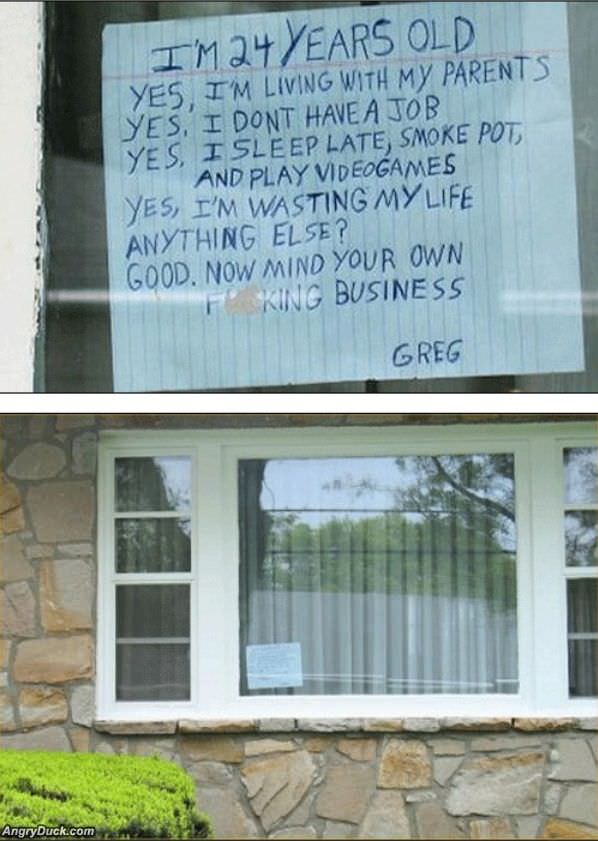 I'M 24 YEARS OLD
YES, I'M LIVING WITH MY PARENTS
YES, I DONT HAVE A JOB
YES, I SLEEP LATE, SMOKE POT,
AND PLAY VIDEOGAMES
YES, I'M WASTING MY LIFE
ANYTHING ELSE?
GOOD. NOW MIND YOUR OWN
F KING BUSINESS
GREG
AngryDuck.com